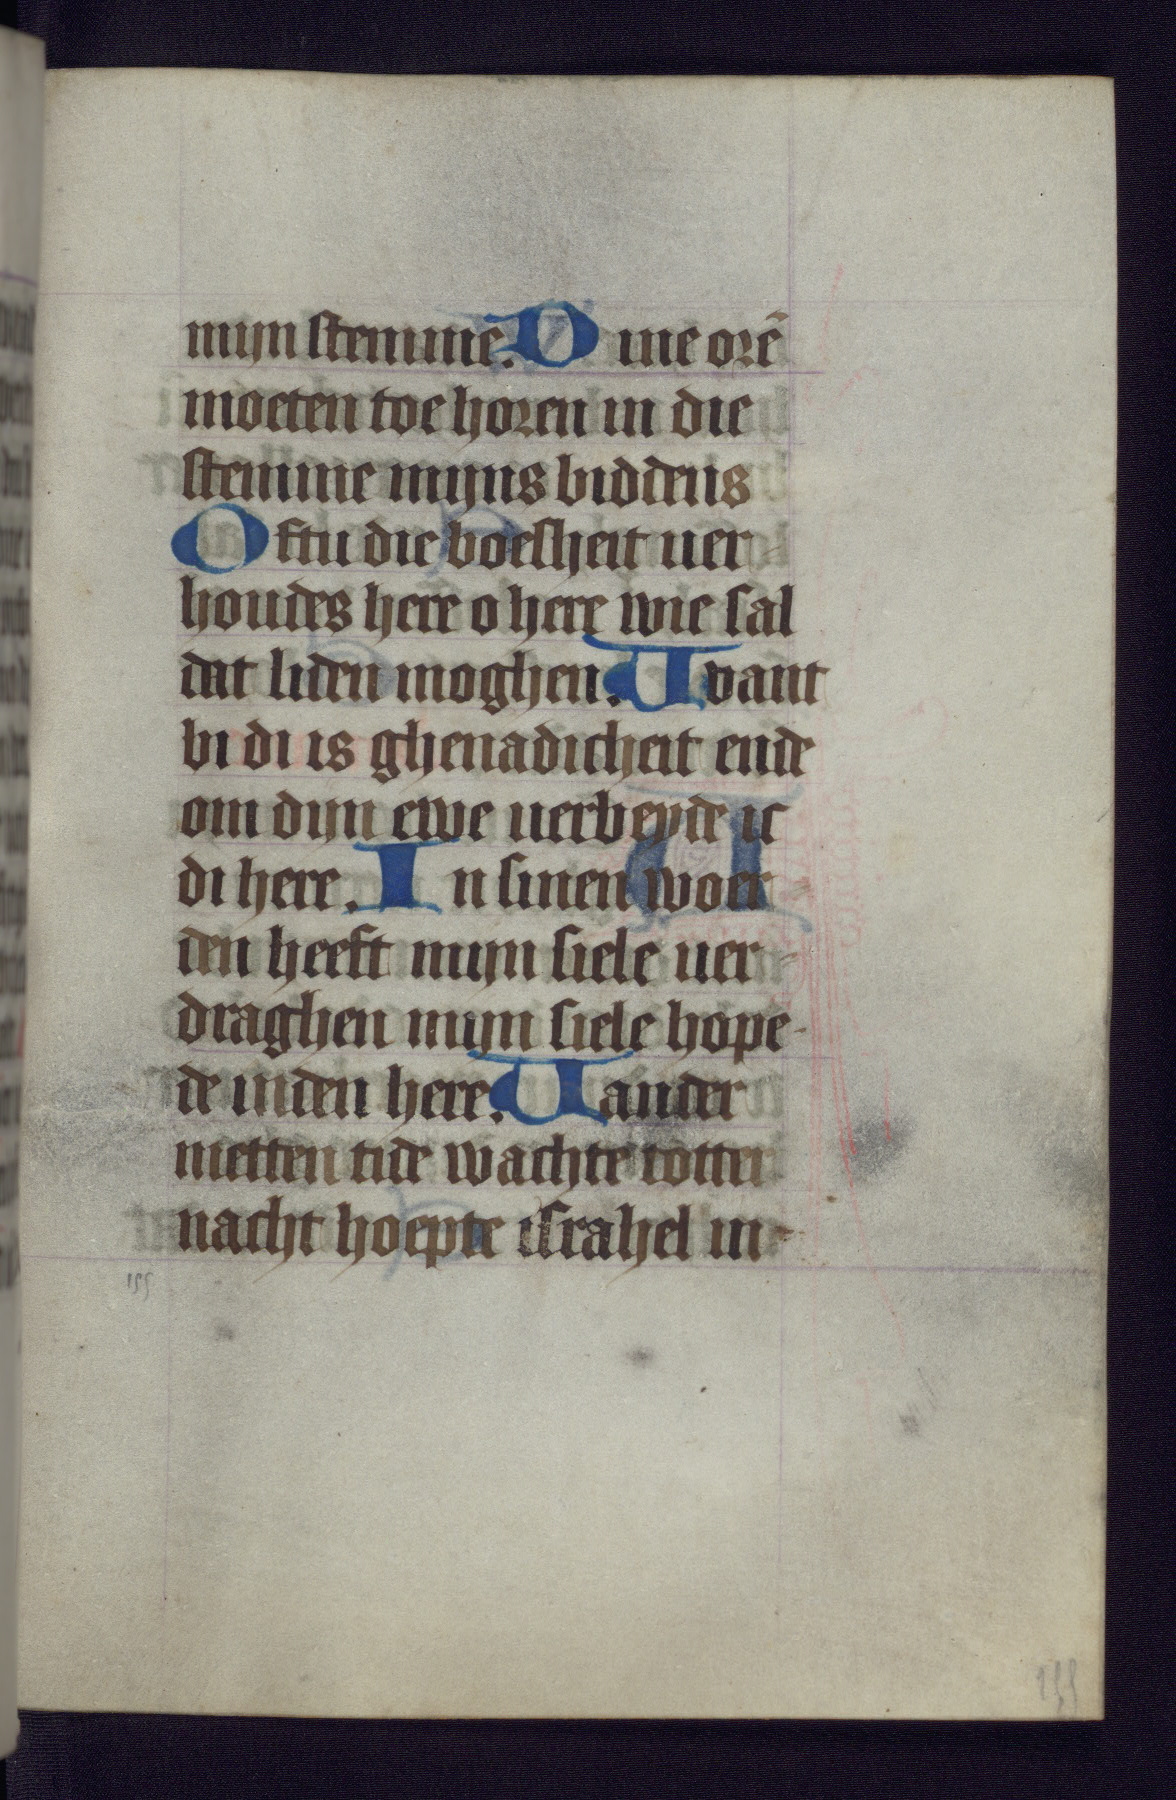 mijn stemme. Dine orē
moeten toe horen in die
stemme mijns biddens
Oftu die boesheit uer-
houdes here o here wie sal
dat liden moghen. Uvant
bi di is ghenadicheit ende
om dijn ewe uerbeyde ic
di here. In sinen woer-
den heeft mijn siele uer-
draghen mijn siele hope-
de inden here. Uander
metten tide wachte totter
nacht hoepte israhel in-
155
155